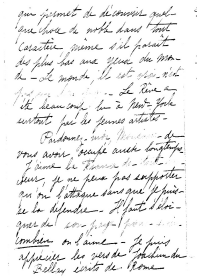 qui permet de découvrir quel-
que chose de noble dans tout
caractère même s'il paraît
des plus bas aux yeux du mon-
de - Le monde
Le Rêve a
été beaucoup lu à New-York
surtout par des jeunes artistes -
Pardonnez-moi
de
vous avoir occupé aussi longtemps
J'aime la
de tout
coeur je ne peux pas supporter
qu'on l'attaque sans que je puis-
se la défendre - Il faut s'éloi-
gner de son pays pour
combien on l'aime - Je puis
apprécier les vers de Joachim du
Bellay écrits de Rome